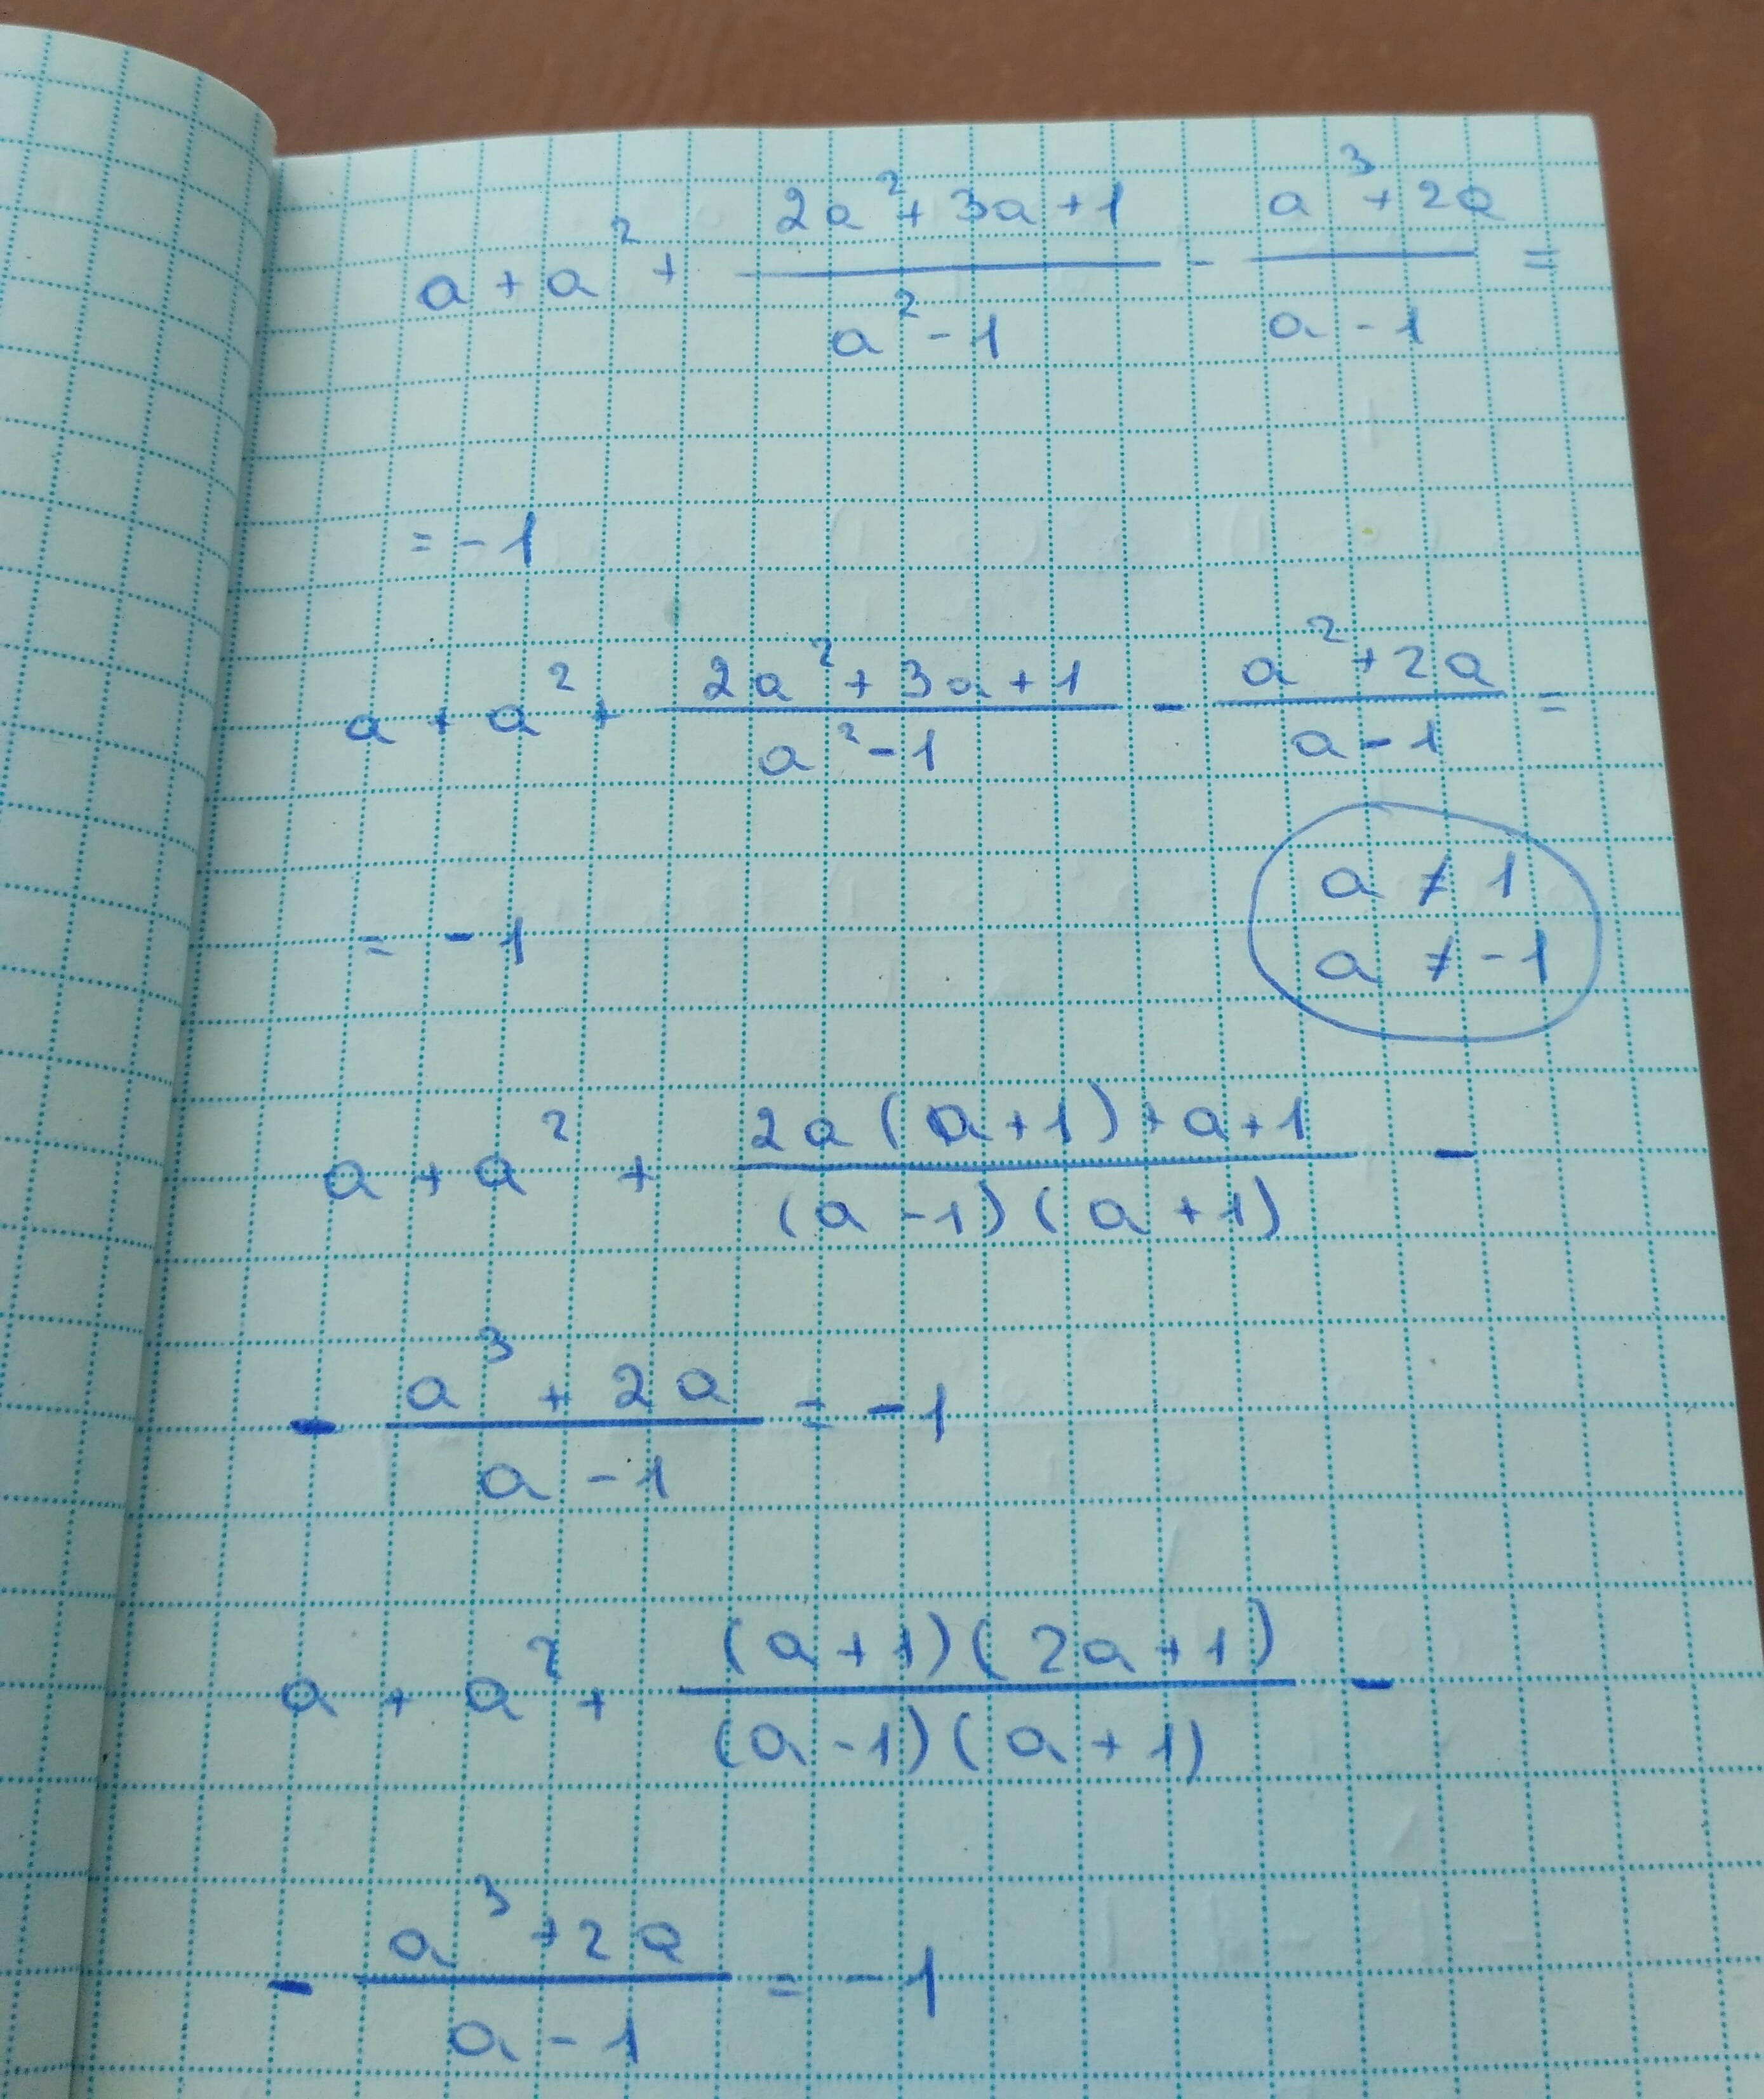 a + a² + (2a² + 3a + 1)/(a² - 1) - (a³ + 2a)/(a - 1) =
= - 1
a + a² + (2a² + 3a + 1)/(a² - 1) - (a² + 2a)/(a - 1) =
a ≠ 1
= - 1
a ≠ - 1
a + a² + (2a(a + 1) + a + 1)/((a - 1)(a + 1)) -
- (a³ + 2a)/(a - 1) = - 1
a + a² + ((a + 1)(2a + 1))/((a - 1)(a + 1)) -
- (a³ + 2a)/(a - 1) = - 1